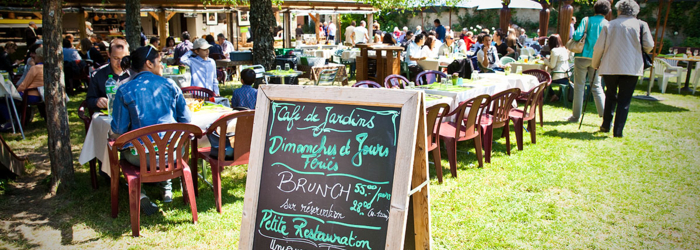 Café de Jardins
Dimanches et Jours
Fériés
BRUNCH 55.-/pers
sur réservation 28.-
Petite Restauration